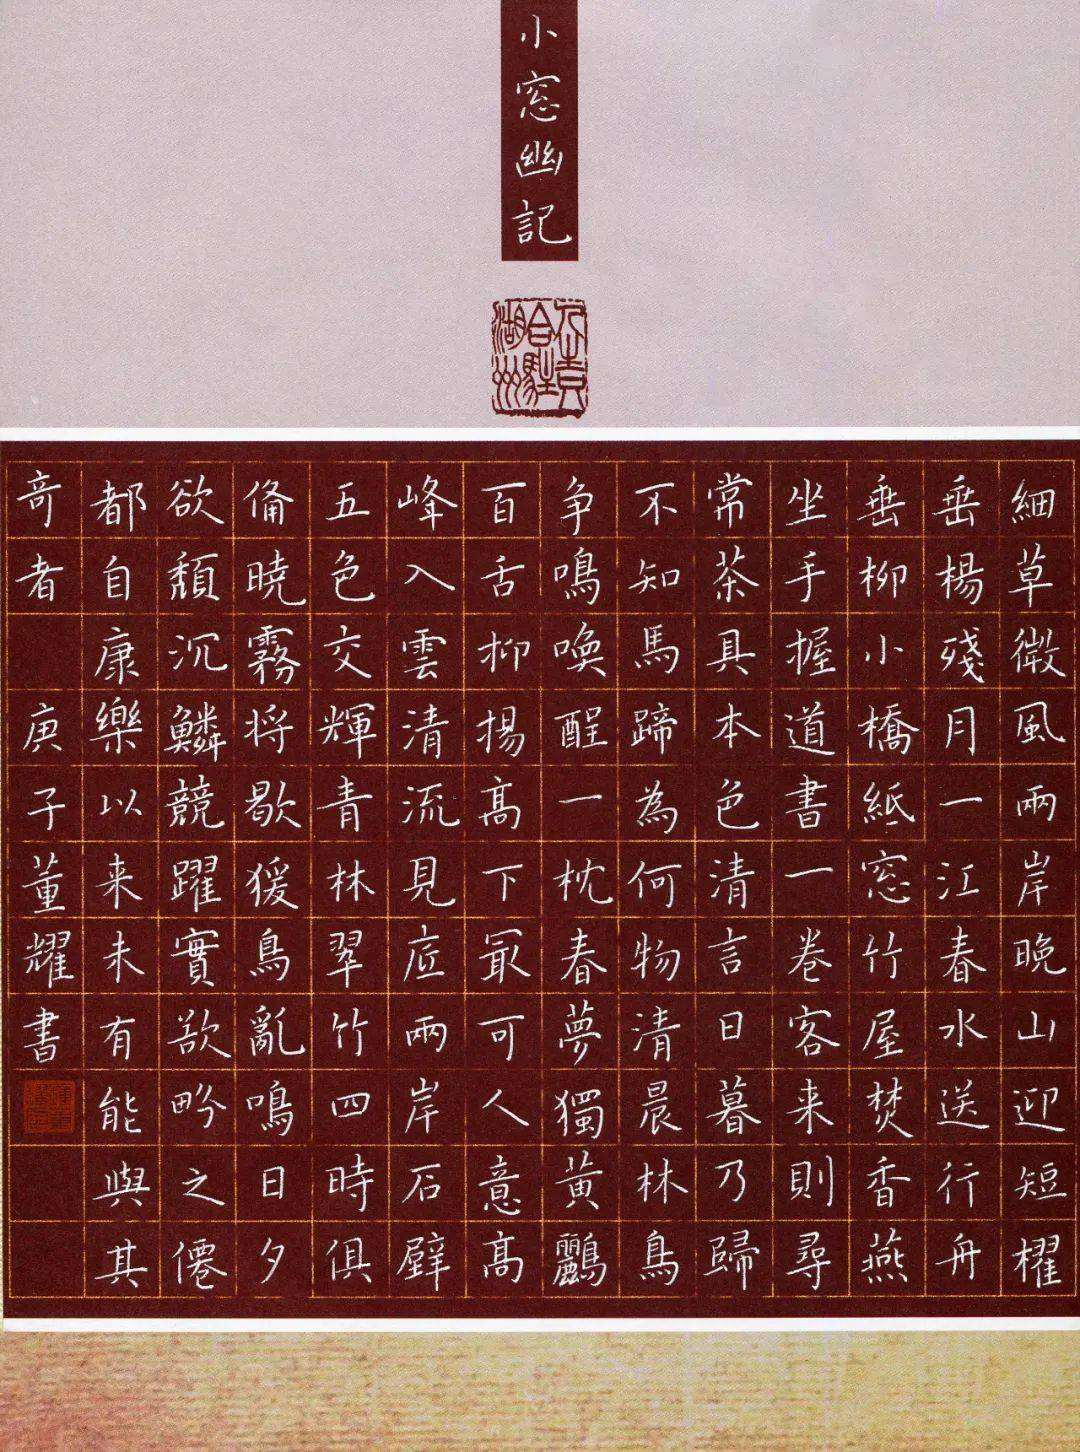 小窓幽記
細草微風兩岸晚山迎短櫂
垂楊殘月一江春水送行舟
垂柳小橋紙窓竹屋焚香燕
坐手握道書一卷客来則尋
常茶具本色清言日暮乃歸
不知馬蹄為何物清晨林鳥
争鳴喚醒一枕春夢獨黃鸝
百舌抑揚高下冣可人意高
峰入雲清流見底兩岸石壁
五色交輝青林翠竹四時俱
俻曉霧将歇猨鳥亂鳴日夕
欲頹沉鱗競躍實欲畍之僊
都自康樂以来未有能與其
奇者 庚子董耀書